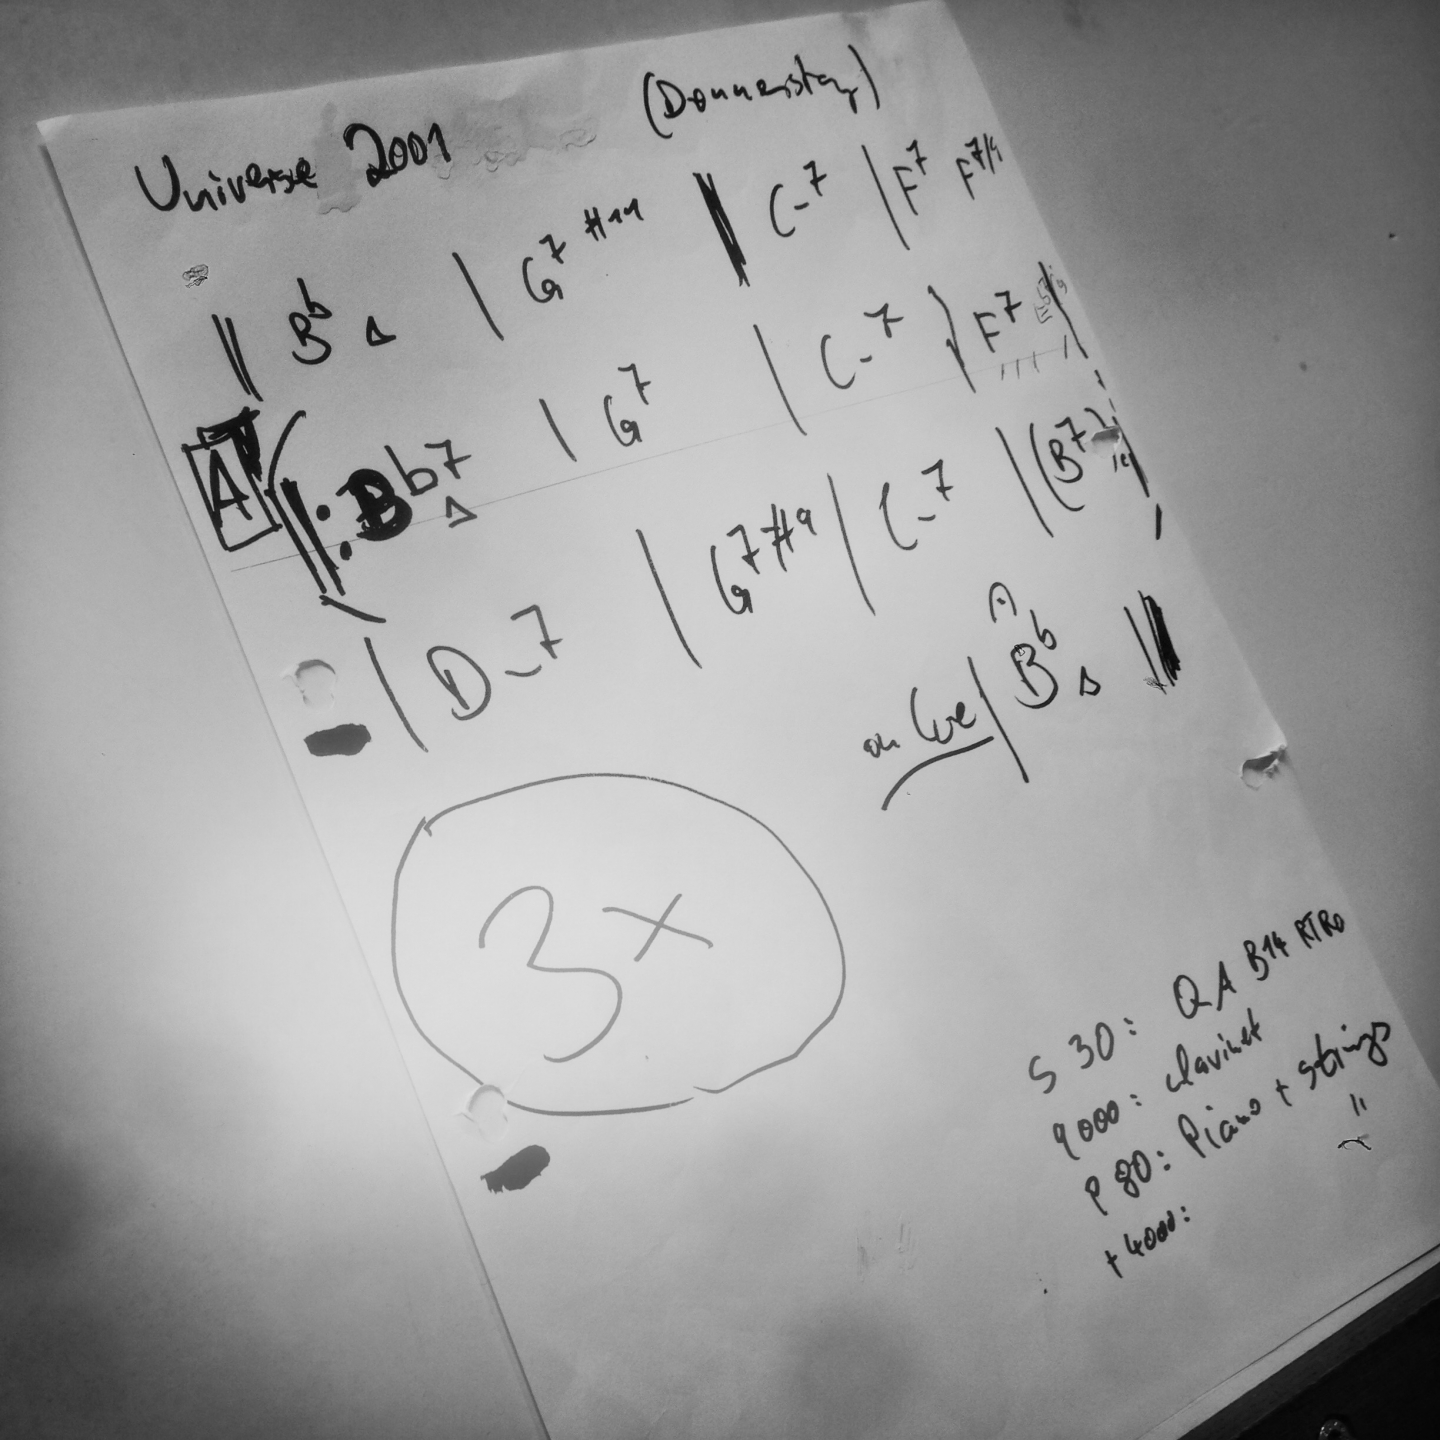 Universe 2001 (Donnerstag)
|| Bb Δ | G7 #11 || C-7 | F7 F7/9
A ||: Bb7 Δ | G7 | C-7 | F7
| D-7 | G7#9 | C-7 | (B7)
on Cue | Bb Δ ||
3x
S 30: QA B14 RTRO
9000: clavinet
P 80: Piano + strings
+ 4000: "